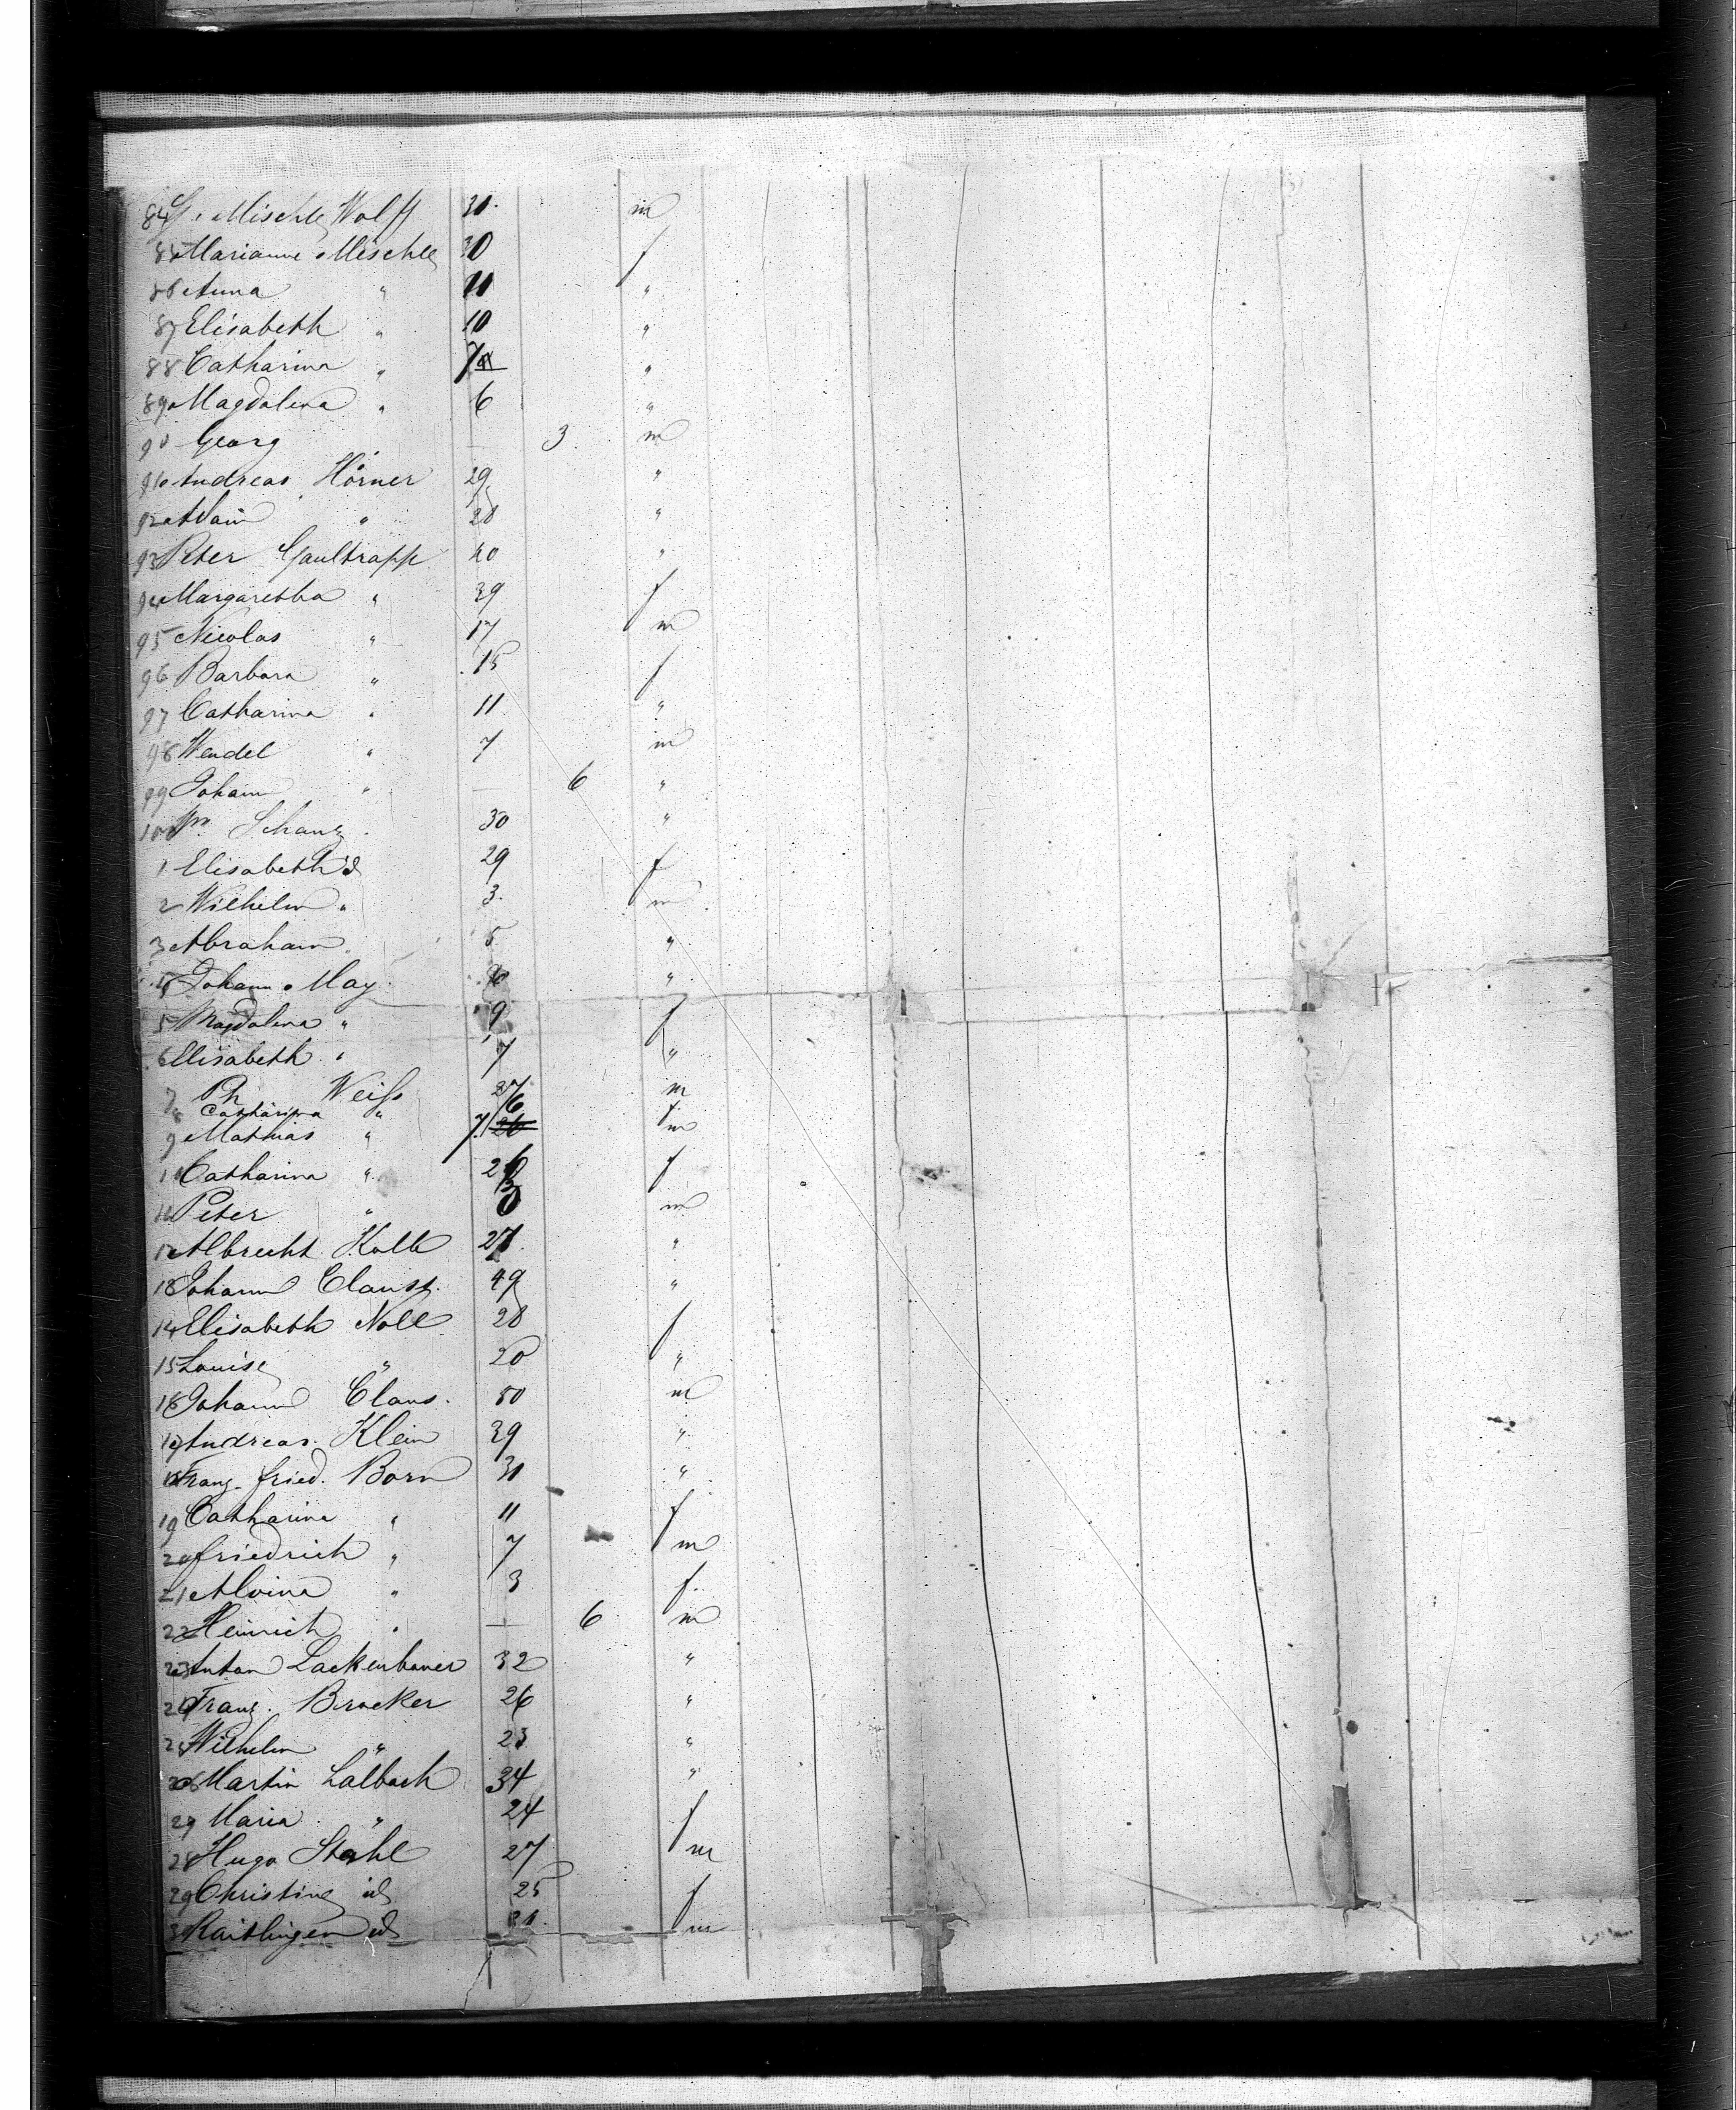 84 G. Mischle Wolff 30. m
85 Marianne Mischle 30 f
86 Anna " 11 "
87 Elisabeth " 10 "
88 Catharina " 7 "
89 Magdalena " 6 "
90 Georg " — 3 m
91 Andreas Hörner 29 "
92 Adam " 28 "
93 Peter Gaultrapp 40 "
94 Margaretha " 39 f
95 Nicolas " 17 m
96 Barbara " 15 f
97 Catharina " 11 "
98 Wendel " 7 m
99 Johann " — 6 "
100 Schanz 30 "
1 Elisabeth id 29 f
2 Wilhelm " 3. m
3 Abraham " 5 "
4 Johann May "
5 Magdalena " 9 f
6 Elisabeth " 7 "
7 Ph Weiss 37 m
8 Catharina " 6 f
9 Mathias " 7 m
10 Catharina " f
11 Peter " m
12 Albrecht Kolb 27 "
13 Johann Clauss. 49 "
14 Elisabeth Noll 28 f
15 Louise " 20 "
16 Johann Claus. 50 m
17 Andreas Klein 39 "
18 Franz fried. Born 30 "
19 Catharina " 11 f
20 friedrich " 7 m
21 Alvina " 3 f
22 Heinrich " — 6 m
23 Anton Lackenbauer 32 "
24 Franz. Bracker 26 "
25 Wilhelm " 23 "
26 Martin Lalbach 34 "
27 Maria " 24 f
28 Hugo Stahl 27 m
29 Christine id 25 f
30 Raithlingen id m